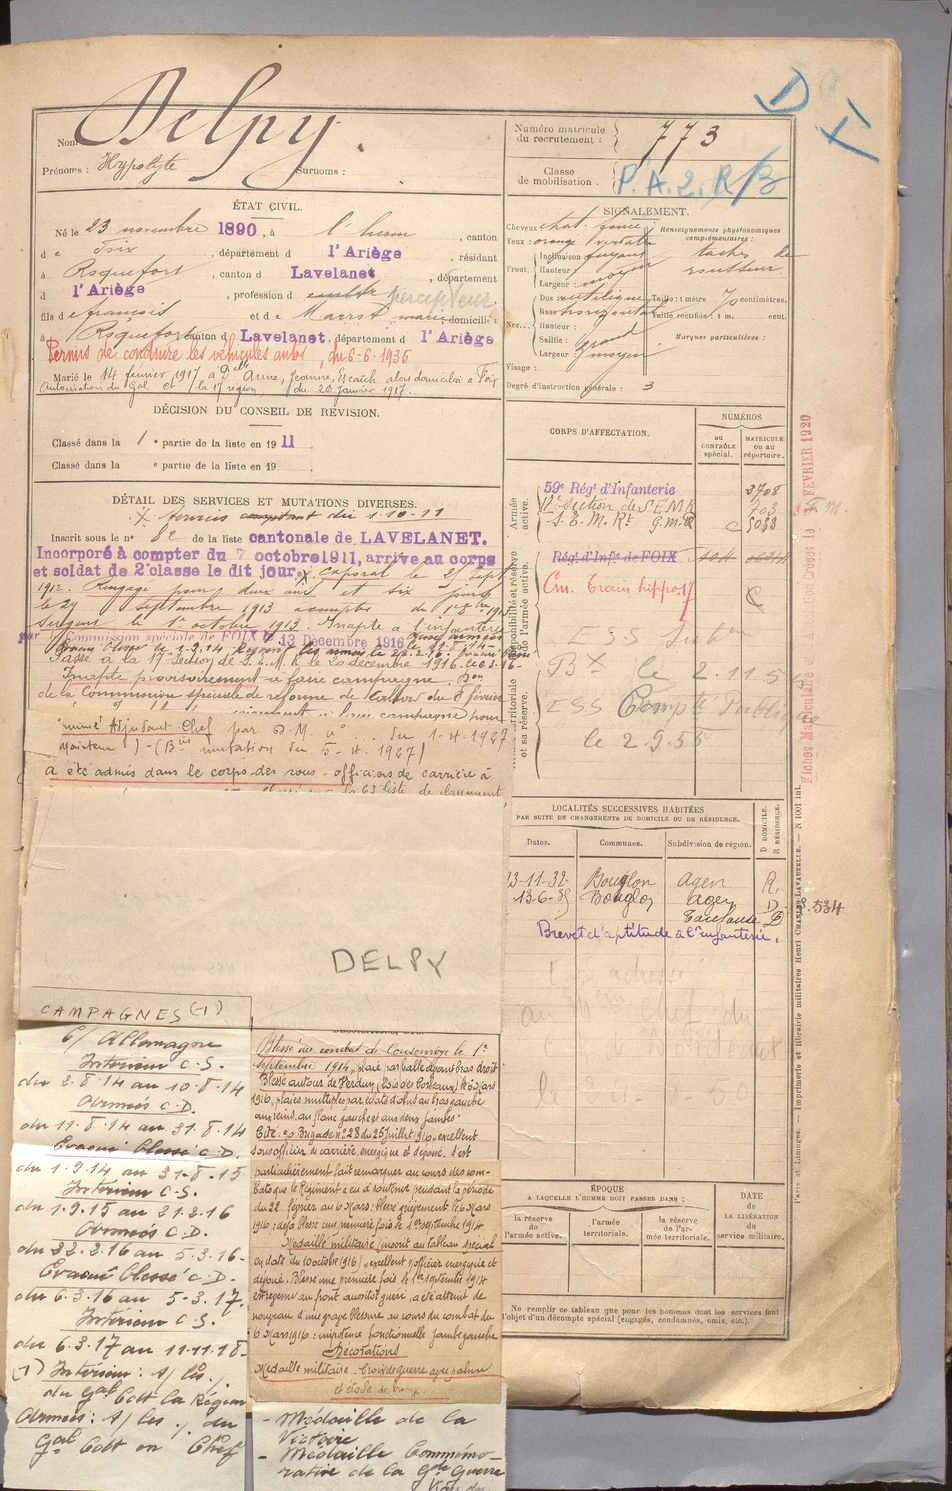 Nom Delpy.
Prénoms : Hypolyte Surnoms :
Numéro matricule du recrutement : 773
Classe de mobilisation.
P.A.2. R/B
ÉTAT CIVIL.
Né le 23 novembre 1890, à l'herm, canton
d e Foix, département d l'Ariège, résidant
à Roquefort, canton d Lavelanet, département
d l'Ariège, profession d percepteur
fils de françois et de Marrot domiciliés
à Roquefort canton d Lavelanet, département d l'Ariège
Permis de conduire les véhicules autos, du 6-6-1935
Marié le 14 février 1917 à Dlle Anne, Jeanne, Escaich alors domiciliée à Foix
Autorisation du Gal Ct la 17e région du 20 janvier 1917.
SIGNALEMENT.
Cheveux chat. foncé
Yeux : orange verdâtre
Renseignements physionomiques complémentaires :
taches de rousseur
Front,
Inclinaison fuyant
Hauteur moyen
Largeur
Nez...
Dos : rectiligne
Base horizontale
Hauteur :
Saillie : grand
Largeur moyen
Taille : 1 mètre 70 centimètres.
Taille rectifiée : 1 m. cent.
Marques particulières :
Visage :
Degré d'instruction générale : 3
DÉCISION DU CONSEIL DE RÉVISION.
Classé dans la 1 e partie de la liste en 1911
Classé dans la e partie de la liste en 19
DÉTAIL DES SERVICES ET MUTATIONS DIVERSES.
X Services comptant du 1-10-11
Inscrit sous le n° 82 de la liste cantonale de LAVELANET.
Incorporé à compter du 7 octobre 1911, arrivé au corps
et soldat de 2e classe le dit jour. X Caporal le 25 Sept
1912. Rengagé pour deux ans et six jours
le 24 septembre 1913 à compter du 1er 8bre 1913
Sergent le 1er octobre 1913. Inapte à l'infanterie
par Commission spéciale de FOIX le 13 Décembre 1916
Passé à la 17e Section de S.E.M.R. le 20 décembre 1916
Inapte provisoirement à faire campagne. Don
de la Commission spéciale de réforme de Cahors du 8 février
nommé Adjudant-Chef par D.M. n° du 1-4-1927
(maintenu) - (Bin mutation du 5-4-1927)
a été admis dans le corps des sous-officiers de carrière à
CORPS D'AFFECTATION.
NUMÉROS
au contrôle spécial.
matricule ou au répertoire.
Armée active.
59e Régt d'Infanterie 3708
17e Section de S E M R 703
S.E.M.R. G.M.R. 5033
Disponibilité et réserve de l'armée active.
Régt d'Infie de FOIX
Cm. Train hippo 17
ESS
Bx le 2.11.5
ESS Compt Publique
le 2.9.55
Armée territoriale et sa réserve.
Fiches Matriculaires
FÉVRIER 1920
LOCALITÉS SUCCESSIVES HABITÉES
PAR SUITE DE CHANGEMENTS DE DOMICILE OU DE RÉSIDENCE.
Dates. Communes. Subdivision de région. D DOMICILE. R RÉSIDENCE.
23-11-32- Bouglon Agen R.
13-6-35 Bouglon Agen D.
Toulouse D
B.534
Brevet d'aptitude à l'infanterie.
Paris et Limoges. — Imprimerie et librairie militaires Henri CHARLES-LAVAUZELLE. — N 1001 int.
DELPY
CAMPAGNES (-1)
C/ Allemagne
Intérieur C.S.
du 2.8.14 au 10.8.14
Armées C.D.
du 11.8.14 au 31.8.14
Evacué blessé C.D.
du 1.9.14 au 31.8.15
Intérieur C.S.
du 1.9.15 au 21.2.16
Armées C.D.
du 22.2.16 au 5.3.16-
Evacué blessé C.D.
du 6.3.16 au 5-3.17.
Intérieur C.S.
du 6.3.17 au 11.11.18-
(1) Intérieur : s/ les o/.
du Gal Cdt la Région
Armées : s/ les o/. du
Gal Cdt en Chef
Blessé au combat de Consenvoye le 1er
septembre 1914, plaie par balle épaule bras droit
Blessé autour de Verdun (bois des Corbeaux) le 6 Mars
1916, plaies multiples par éclats d'obus au bras gauche
aux reins, au flanc gauche et aux deux jambes.
Cité o/o Brigade n° 28 du 25 Juillet 1916 "excellent
sous officier de carrière, énergique et dévoué. S'est
particulièrement fait remarquer au cours des com-
bats que le Régiment a eu à soutenir pendant la période
du 22 février au 6 Mars : blessé grièvement le 6 Mars
1916 : déjà blessé une première fois le 1er septembre 1914
Médaille militaire (inscrit au tableau spécial
en date du 10 octobre 1916) "excellent s/officier énergique et
dévoué. Blessé une première fois le 1er septembre 1914
et revenu au front aussitôt guéri, a été atteint de
nouveau d'une grave blessure au cours du combat du
6 Mars 1916 : impotence fonctionnelle jambe gauche
Décorations
Médaille militaire - Croix de guerre avec palme
et étoile de bronze
- Médaille de la
Victoire
- Médaille Commémo-
rative de la Gde Guerre
ÉPOQUE
A LAQUELLE L'HOMME DOIT PASSER DANS :
la réserve de l'armée active.
l'armée territoriale.
la réserve de l'armée territoriale.
DATE DE LA LIBÉRATION du service militaire.
Ne remplir ce tableau que pour les hommes dont les services font
l'objet d'un décompte spécial (engagés, condamnés, omis, etc.).